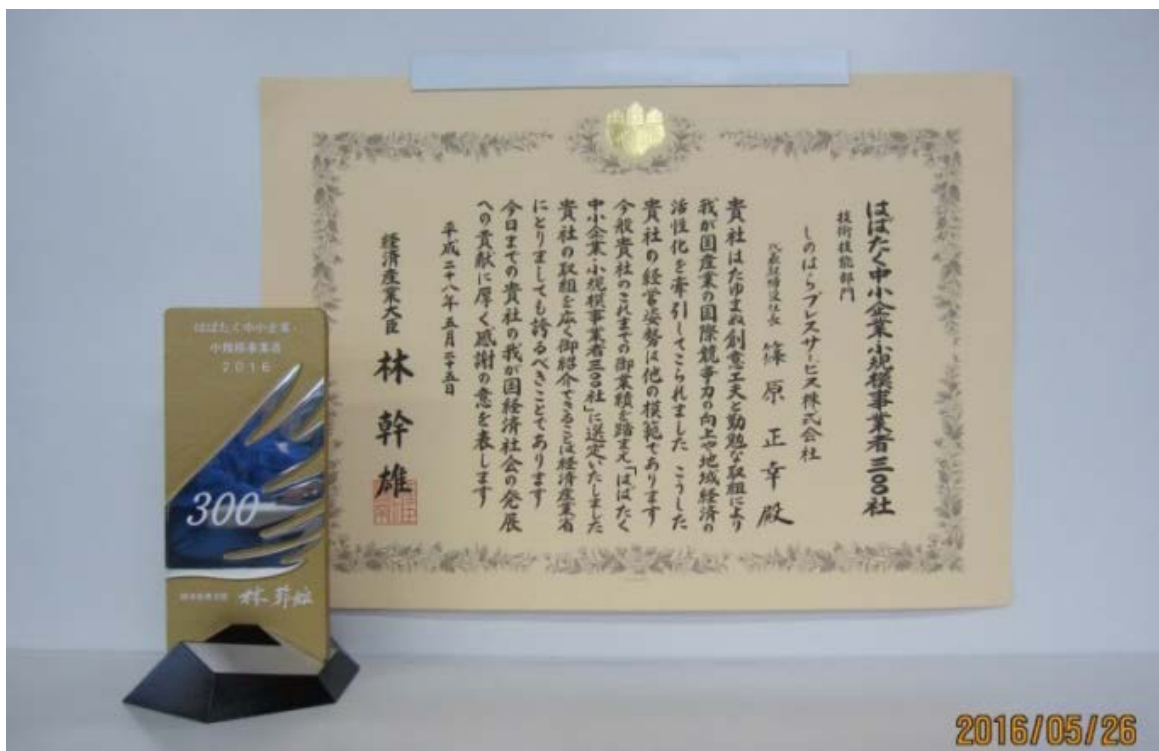 はばたく中小企業・小規模事業者三〇〇社
技術技能部門
しのはらプレスサービス株式会社
代表取締役社長 篠原 正幸 殿
貴社はたゆまぬ創意工夫と勤勉な取組により
我が国産業の国際競争力の向上や地域経済の
活性化を牽引してこられました こうした
貴社の経営姿勢は他の模範であります
今般貴社のこれまでの御業績を踏まえ「はばたく
中小企業・小規模事業者三〇〇社」に選定いたしました
貴社の取組を広く御紹介できることは経済産業省
にとりましても誇るべきことであります
今日までの貴社の我が国経済社会の発展
への貢献に厚く感謝の意を表します
平成二十八年五月二十五日
経済産業大臣 林 幹雄
はばたく中小企業・
小規模事業者
2016
300
経済産業大臣 林幹雄
2016/05/26